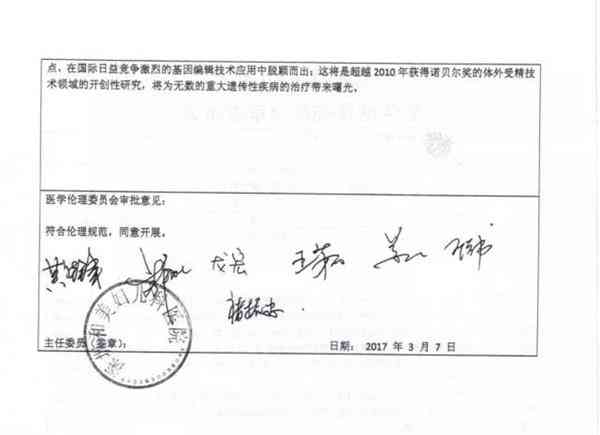 点、在国际日益竞争激烈的基因编辑技术应用中脱颖而出;这将是超越 2010 年获得诺贝尔奖的体外受精技
术领域的开创性研究,将为无数的重大遗传性疾病的治疗带来曙光。
医学伦理委员会审批意见:
符合伦理规范,同意开展。
深圳和美妇儿科医院
主任委员(签章): 日期: 2017 年 3 月 7 日